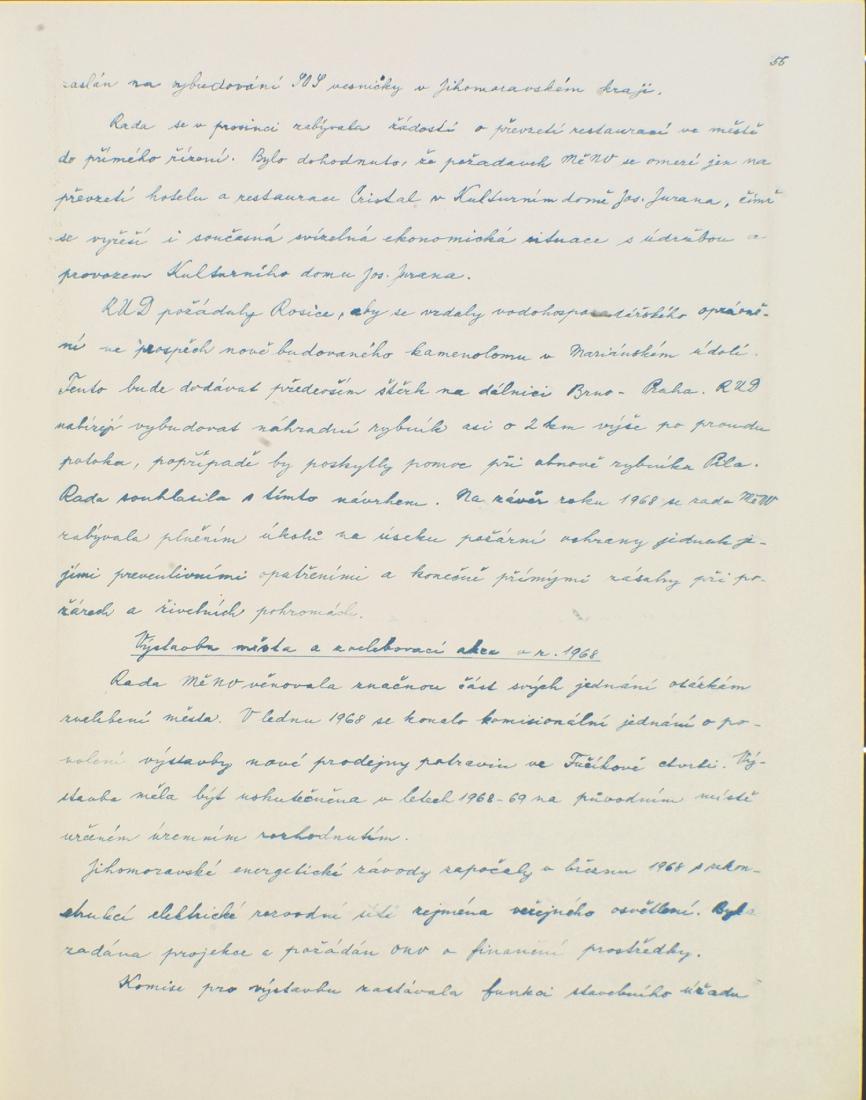 55
zaslán na vybudování SOS vesničky v Jihomoravském kraji.
Rada se v prosinci zabývala žádostí o převzetí restaurací ve městě
do přímého řízení. Bylo dohodnuto, že požadavek MěNV se omezí jen na
převzetí hotelu a restaurace Cristal v Kulturním domě Jos. Jurana, čímž
se vyřeší i současná svízelná ekonomická situace s údržbou a
provozem Kulturního domu Jos. Jurana.
RUD požáduly Rosice, aby se vzdaly vodohospodářského oprávně-
ní ve prospěch nově budovaného kamenolomu v Mariánském údolí.
Tento bude dodávat především štěrk na dálnici Brno - Praha. RUD
nabízejí vybudovat náhradní rybník asi o 2 km výše po proudu
potoka, popřípadě by poskytly pomoc při obnově rybníka Pila.
Rada souhlasila s tímto návrhem. Na závěr roku 1968 se rada MěNV
zabývala plněním úkolů na úseku požární ochrany jednak je-
jími preventivními opatřeními a konečně přímými zásahy při po-
žárech a živelních pohromách.
Výstavba města a zvelebovací akce v r. 1968
Rada MěNV věnovala značnou část svých jednání otázkám
zvelebení města. V lednu 1968 se konalo komisionální jednání o po-
volení výstavby nové prodejny potravin ve Fučíkově čtvrti. Vý-
stavba měla být uskutečněna v letech 1968-69 na původním místě
určeném územním rozhodnutím.
Jihomoravské energetické závody započaly v březnu 1968 s rekon-
strukcí elektrické rozvodné sítě zejména veřejného osvětlení. Byla
zadáva projekce a požádán ONV o finanční prostředky.
Komise pro výstavbu zastávala funkci stavebního úřadu